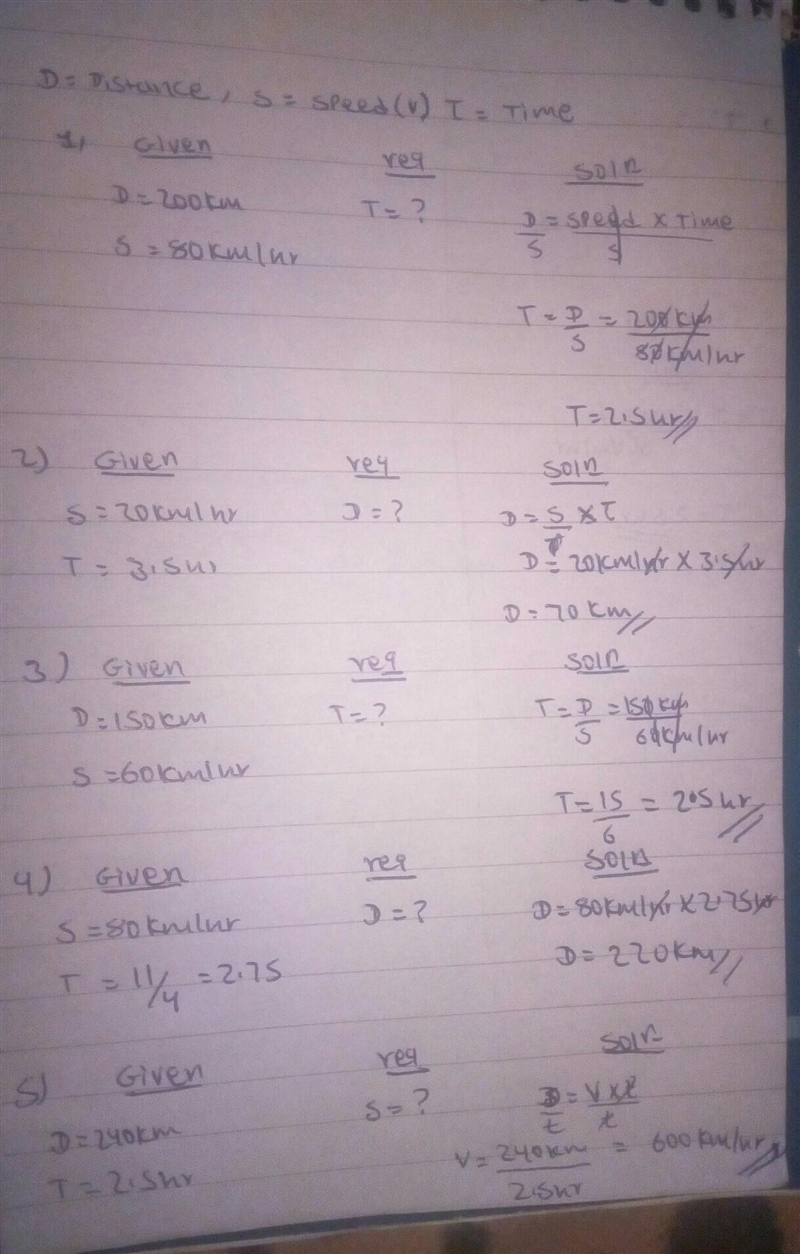 D = Distance, S = speed(v) T = Time
1, Given req soln
D = 200km T = ? D/S = speed x Time/S
S = 80km/hr
T = D/S = 200km/80km/hr
T = 2.5hr//
2) Given req soln
S = 20km/hr D = ? D = S x T
T = 3.5hr D = 20km/hr x 3.5hr
D = 70 km//
3) Given req soln
D = 150km T = ? T = D/S = 150km/60km/hr
S = 60km/hr
T = 15/6 = 2.5hr//
4) Given req soln
S = 80km/hr D = ? D = 80km/hr x 2.75hr
T = 11/4 = 2.75 D = 220km//
5) Given req soln
D = 240km S = ? D/t = V x t/t
T = 2.5hr V = 240km/2.5hr = 600km/hr//